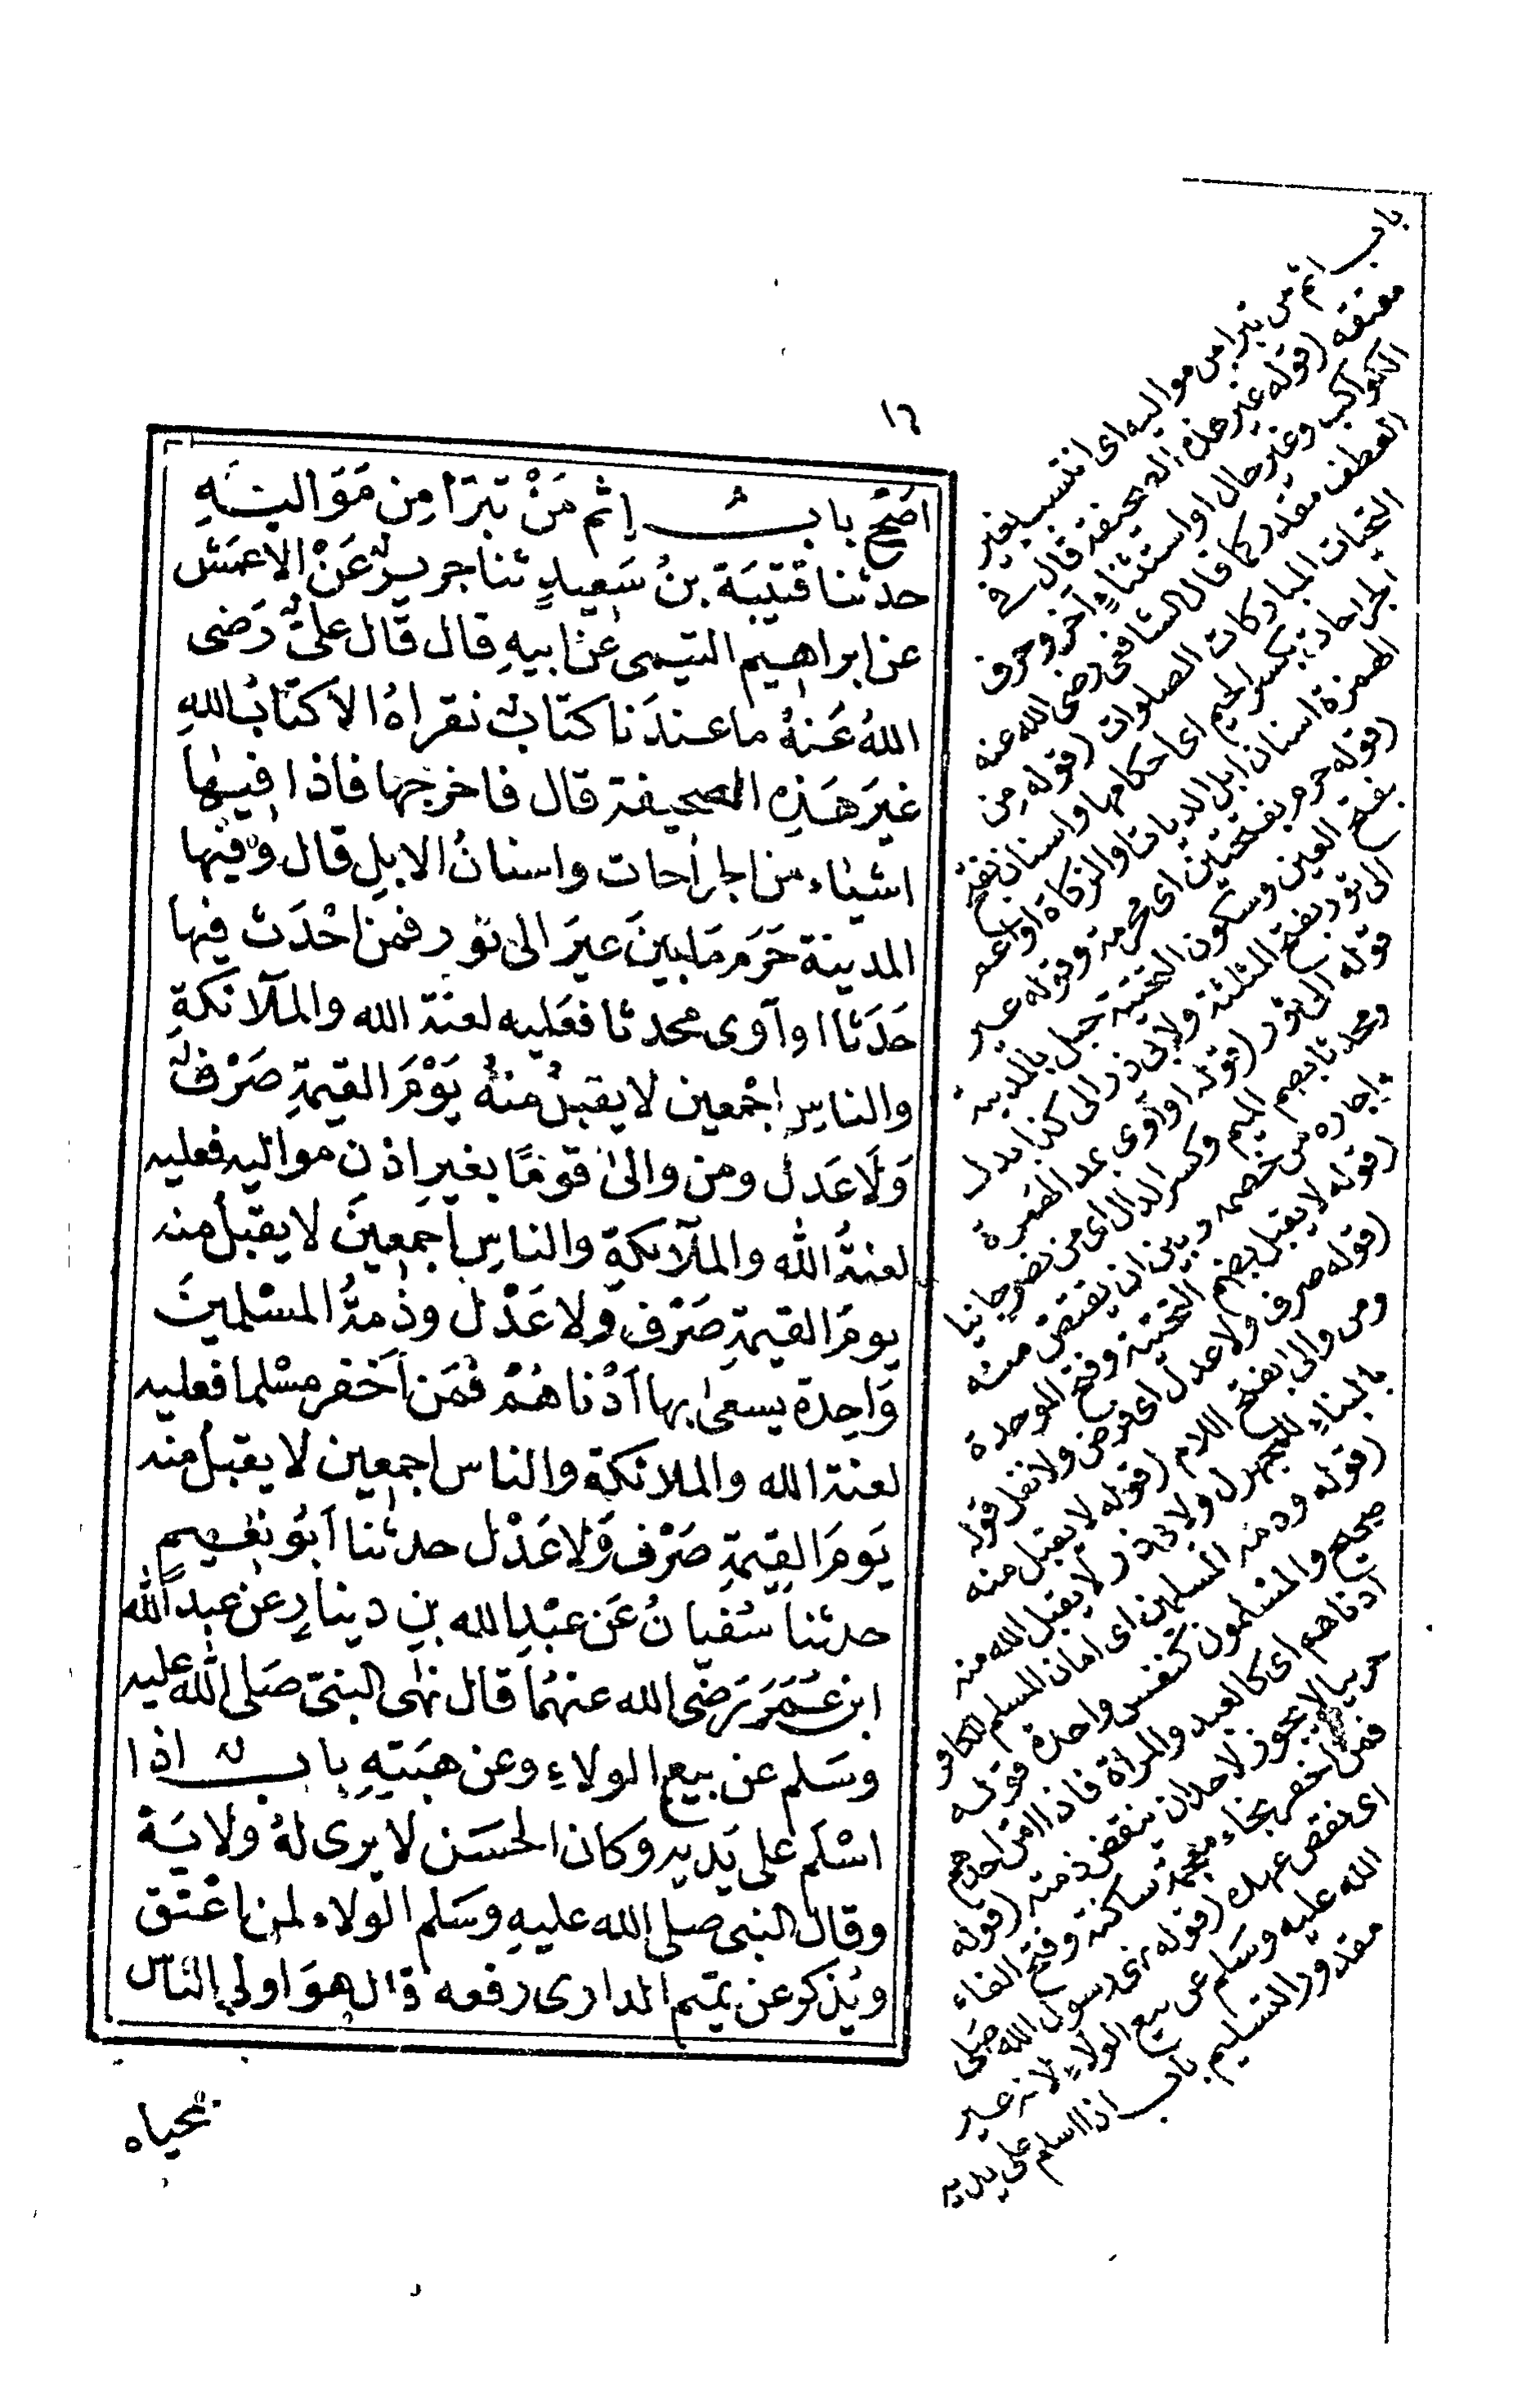 ١٦
اصَحّ بابُ إثم مَنْ تبرّا مِن مَوَاليهِ
حدثنا قتيبَة بنُ سَعِيدٍ ثنا جريرٌ عَنْ الاعمَش
عن ابراهيم التيمى عن ابيهِ قال قَال علىٌّ رَضى
اللهُ عَنهُ ما عندَنا كتابٌ نقراهُ الا كتابُ اللهِ
غيرَ هَذِهِ الصحيفة قال فاخرجها فاذا فيها
اشيَاء من الجراحات واسنانُ الابلِ قال وَفيها
المدينة حَرَم مَا بينَ عيرَ الى ثور فمن احْدَث فيها
حَدَثا او آوى محدثا فعَليه لعنة الله والملآئكةِ
والناسِ اجْمعين لا يقبلُ منهُ يَوْمَ القيمةِ صَرْفٌ
وَلَا عَدل ومن والىٰ قومًا بغيرِ اذن مواليه فعليه
لعنةُ الله والملآئكةِ والناسِ اَجمعينَ لا يقبلُ منه
يومَ القيمةِ صَرْف ولا عَدْل وذمةُ المسْلمينَ
وَاحِدة يسعىٰ بها اَدْناهُمْ فمَن اَخفر مسْلما فعليه
لعنة الله والملائكة والناس اجمعين لا يقبل منه
يَومَ القيمةِ صَرْف وَلا عَدْل حدثنا اَبُو نعيمٍ
حدثنا سُفيانُ عَن عبْدِ الله بنِ دينارٍ عن عبدِ الله
ابن عُمَرَ رَضى الله عنهُما قال نهٰى النبىّ صَلى الله عليه
وسَلم عن بيع الولاءِ وعن هبَتهِ بابٌ اذا
اسْلَم على يَديه وكان الحسَن لا يرى لهُ ولايَةً
وقال النبى صلى الله عليهِ وسَلم الولاء لمن اعْتق
ويُذكر عن تميم الدارى رفعه قال هوَ اولى الناس
بمحياه
باب اثم من تبرا من مواليه اى انتسب لغير
معتقه (قوله غير هذه الصحيفة قال فى
الكواكب وغير حال او استثناءٍ آخر وحرف
العطف مقدر كما قال الشافعى رضى الله عنه
التحيات المباركات الصلوات (قوله من
الجراحات بكسر الجيم اى احكامها واسنان بفتح
الهمزة اسنان ابل الديات او الزكاة او اعم
(قوله حرم بفتحتين اى محرمة وقوله عير
بفتح العين وسكون التحتية جبل بالمدينة
الى ثور بفتح المثلثة ولابى ذر الى كذا بدل
قوله الى ثور (قوله او آوى بمد الهمزة
ومحدثا بضم الميم وكسر الدال اى من نصر جانيا
واجاره من خصمه وبين ان يقتص منه
(قوله لا يقبل بضم التحتية وفتح الموحدة
(قوله صرف ولا عدل اى فرض ولا نفل قوله
ومن والى بفتح اللام (قوله لا يقبل منه
بالبناءِ للمجهول ولابى ذر لا يقبل الله منه
(قوله وذمة المسلمين اى امان المسلم للكافر
صحيح والمسلمون كنفس واحدة قوله
ادناهم اى كالعبد والمراة فاذا امن احدهم
حربيا لا يجوز لاحد ان ينقض ذمته (قوله
فمن اخفر بخاء معجمة ساكنة وفتح الفاء
اى نقض عهده (قوله نهى رسول الله صلى
الله عليه وسلم عن بيع الولاءِ لانه غير
مقدور التسليم باب اذا اسلم على يديه